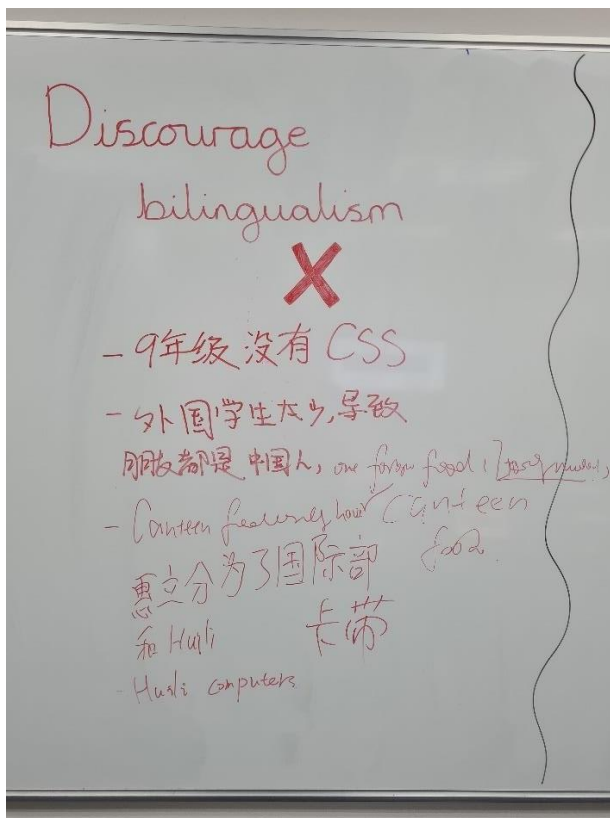 Discourage
bilingualism
- 9年级 没有 CSS
- 外国学生太少,导致
朋友都是 中国人, one food
- Canteen Canteen
food
惠立分为了国际部
和 Huili 卡带
- Huili computers